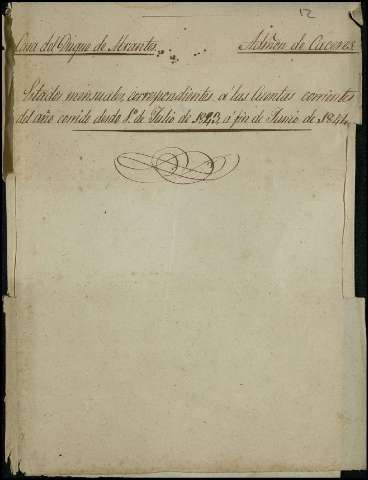 12
Casa del Duque de Abrantes
Admon de Caceres
Estados mensuales, correspondientes á las Cuentas corrientes
del año corrido desde 1º de Julio de 1843, á fin de Junio de 1844.